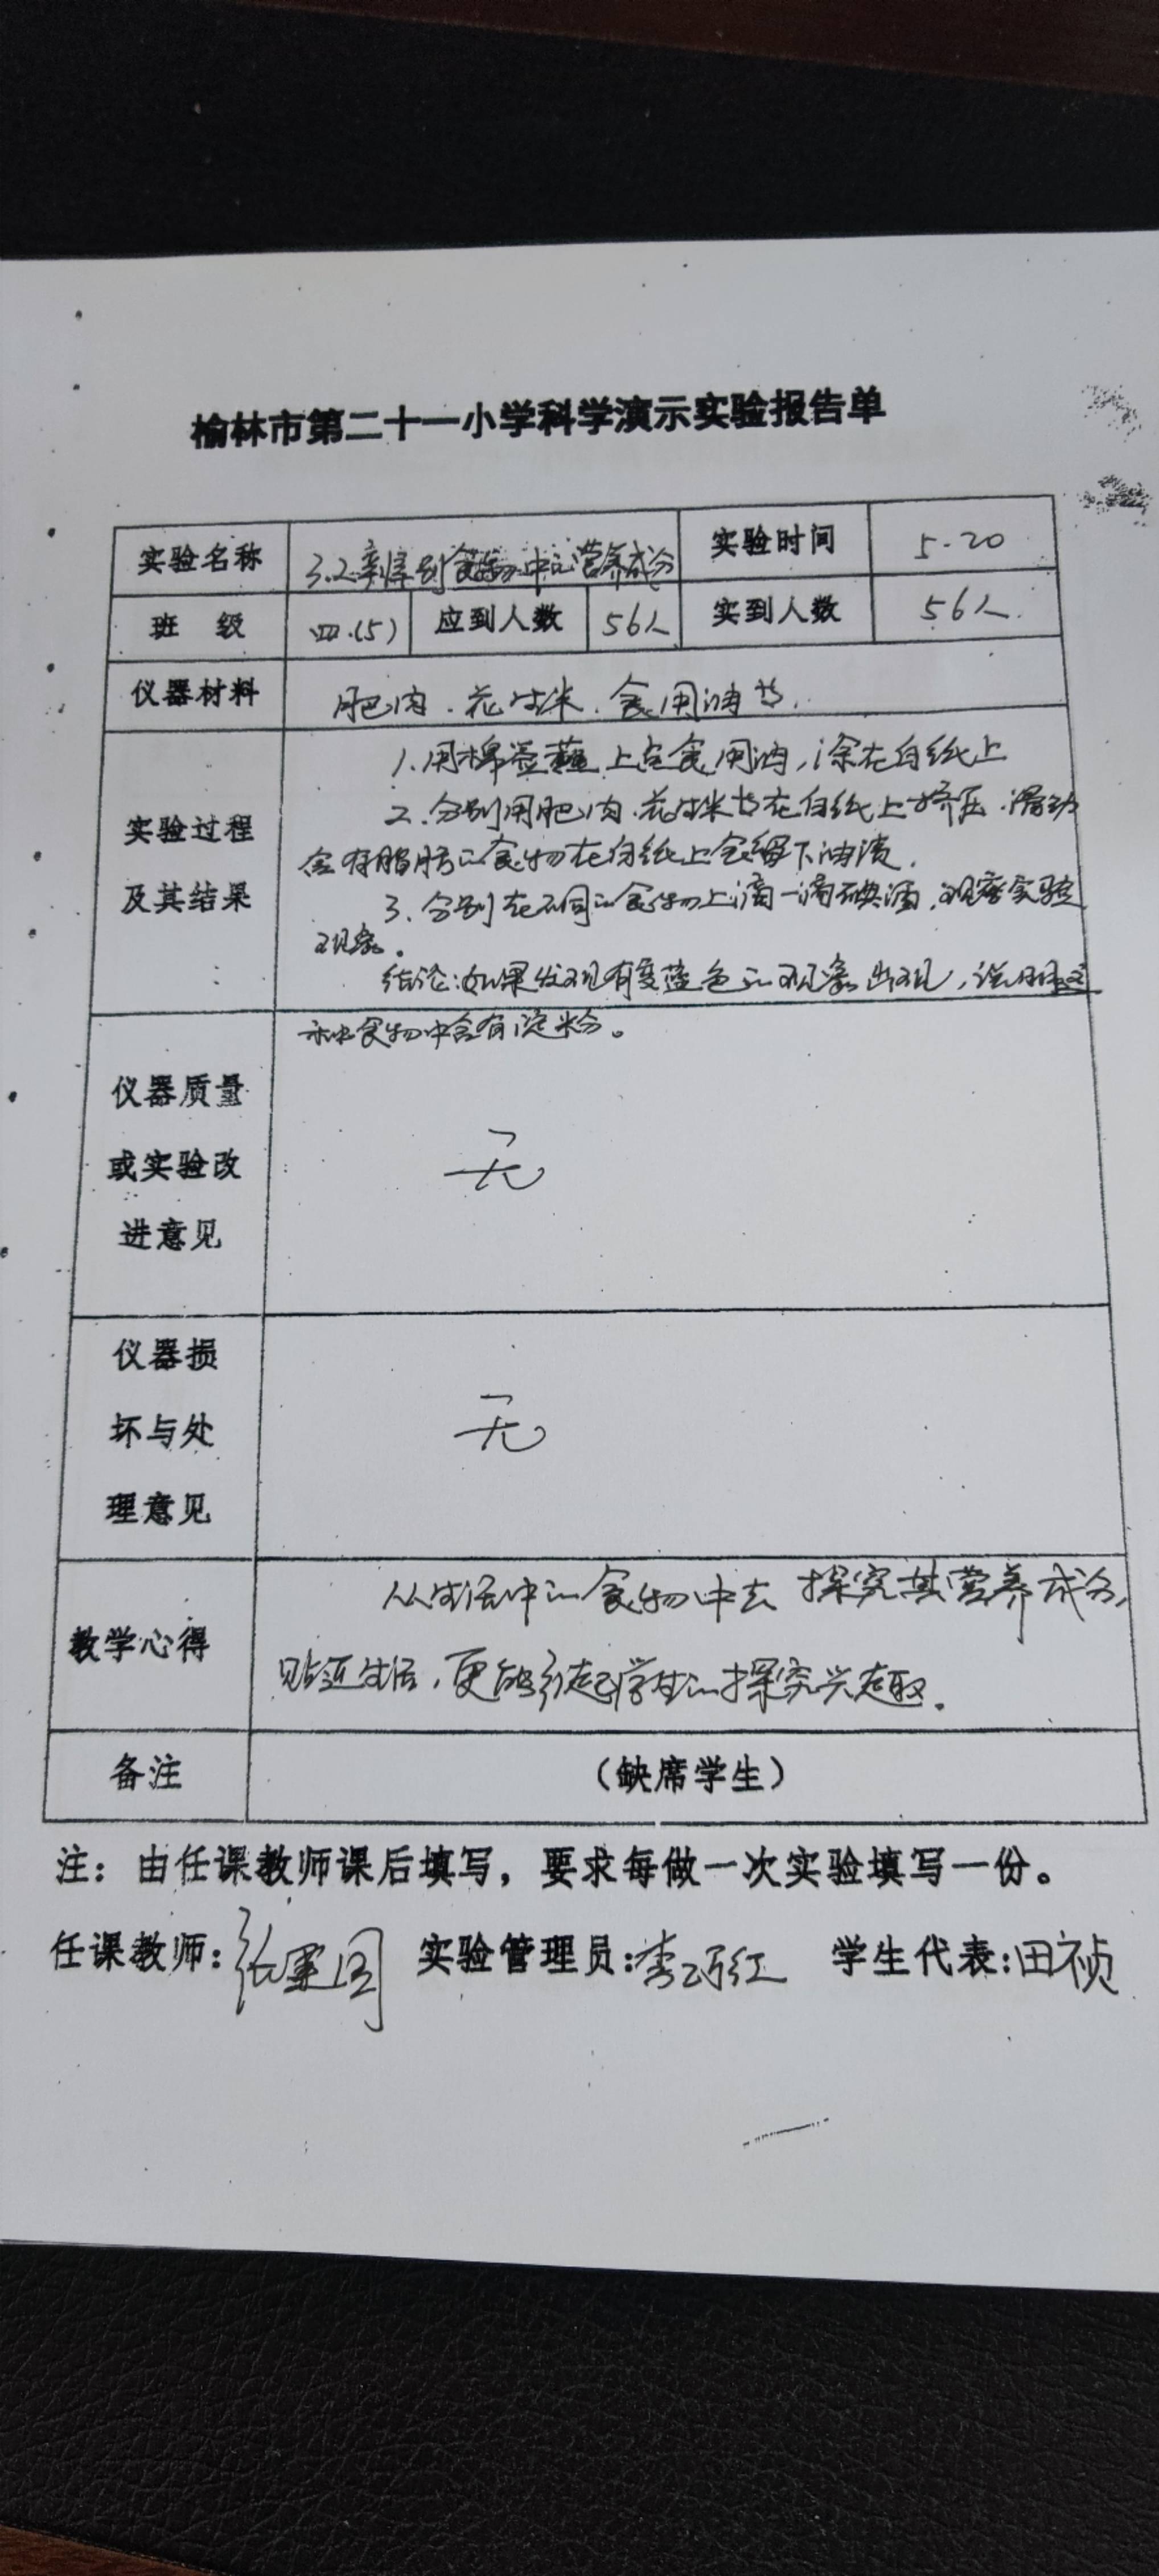 榆林市第二十一小学科学演示实验报告单
实验名称 3.2辨别食物中的营养成分 实验时间 5.20
班 级 四.(5) 应到人数 56人 实到人数 56人.
仪器材料 肥肉.花生米.食用油等.
实验过程
及其结果
1.用棉签蘸上点食用油,涂在白纸上
2.分别用肥肉.花生米等在白纸上挤压.滑动
含有脂肪的食物在白纸上会留下油渍.
3.分别在不同的食物上滴一滴碘酒,观察实验
现象.
结论:如果发现有变蓝色的现象出现,说明这
种食物中含有淀粉。
仪器质量
或实验改
进意见
无
仪器损
坏与处
理意见
无
教学心得
从生活中的食物中去探究其营养成分,
贴近生活,更能引起学生的探究兴趣.
备注 (缺席学生)
注:由任课教师课后填写,要求每做一次实验填写一份。
任课教师:张军国 实验管理员:李巧红 学生代表:田祯